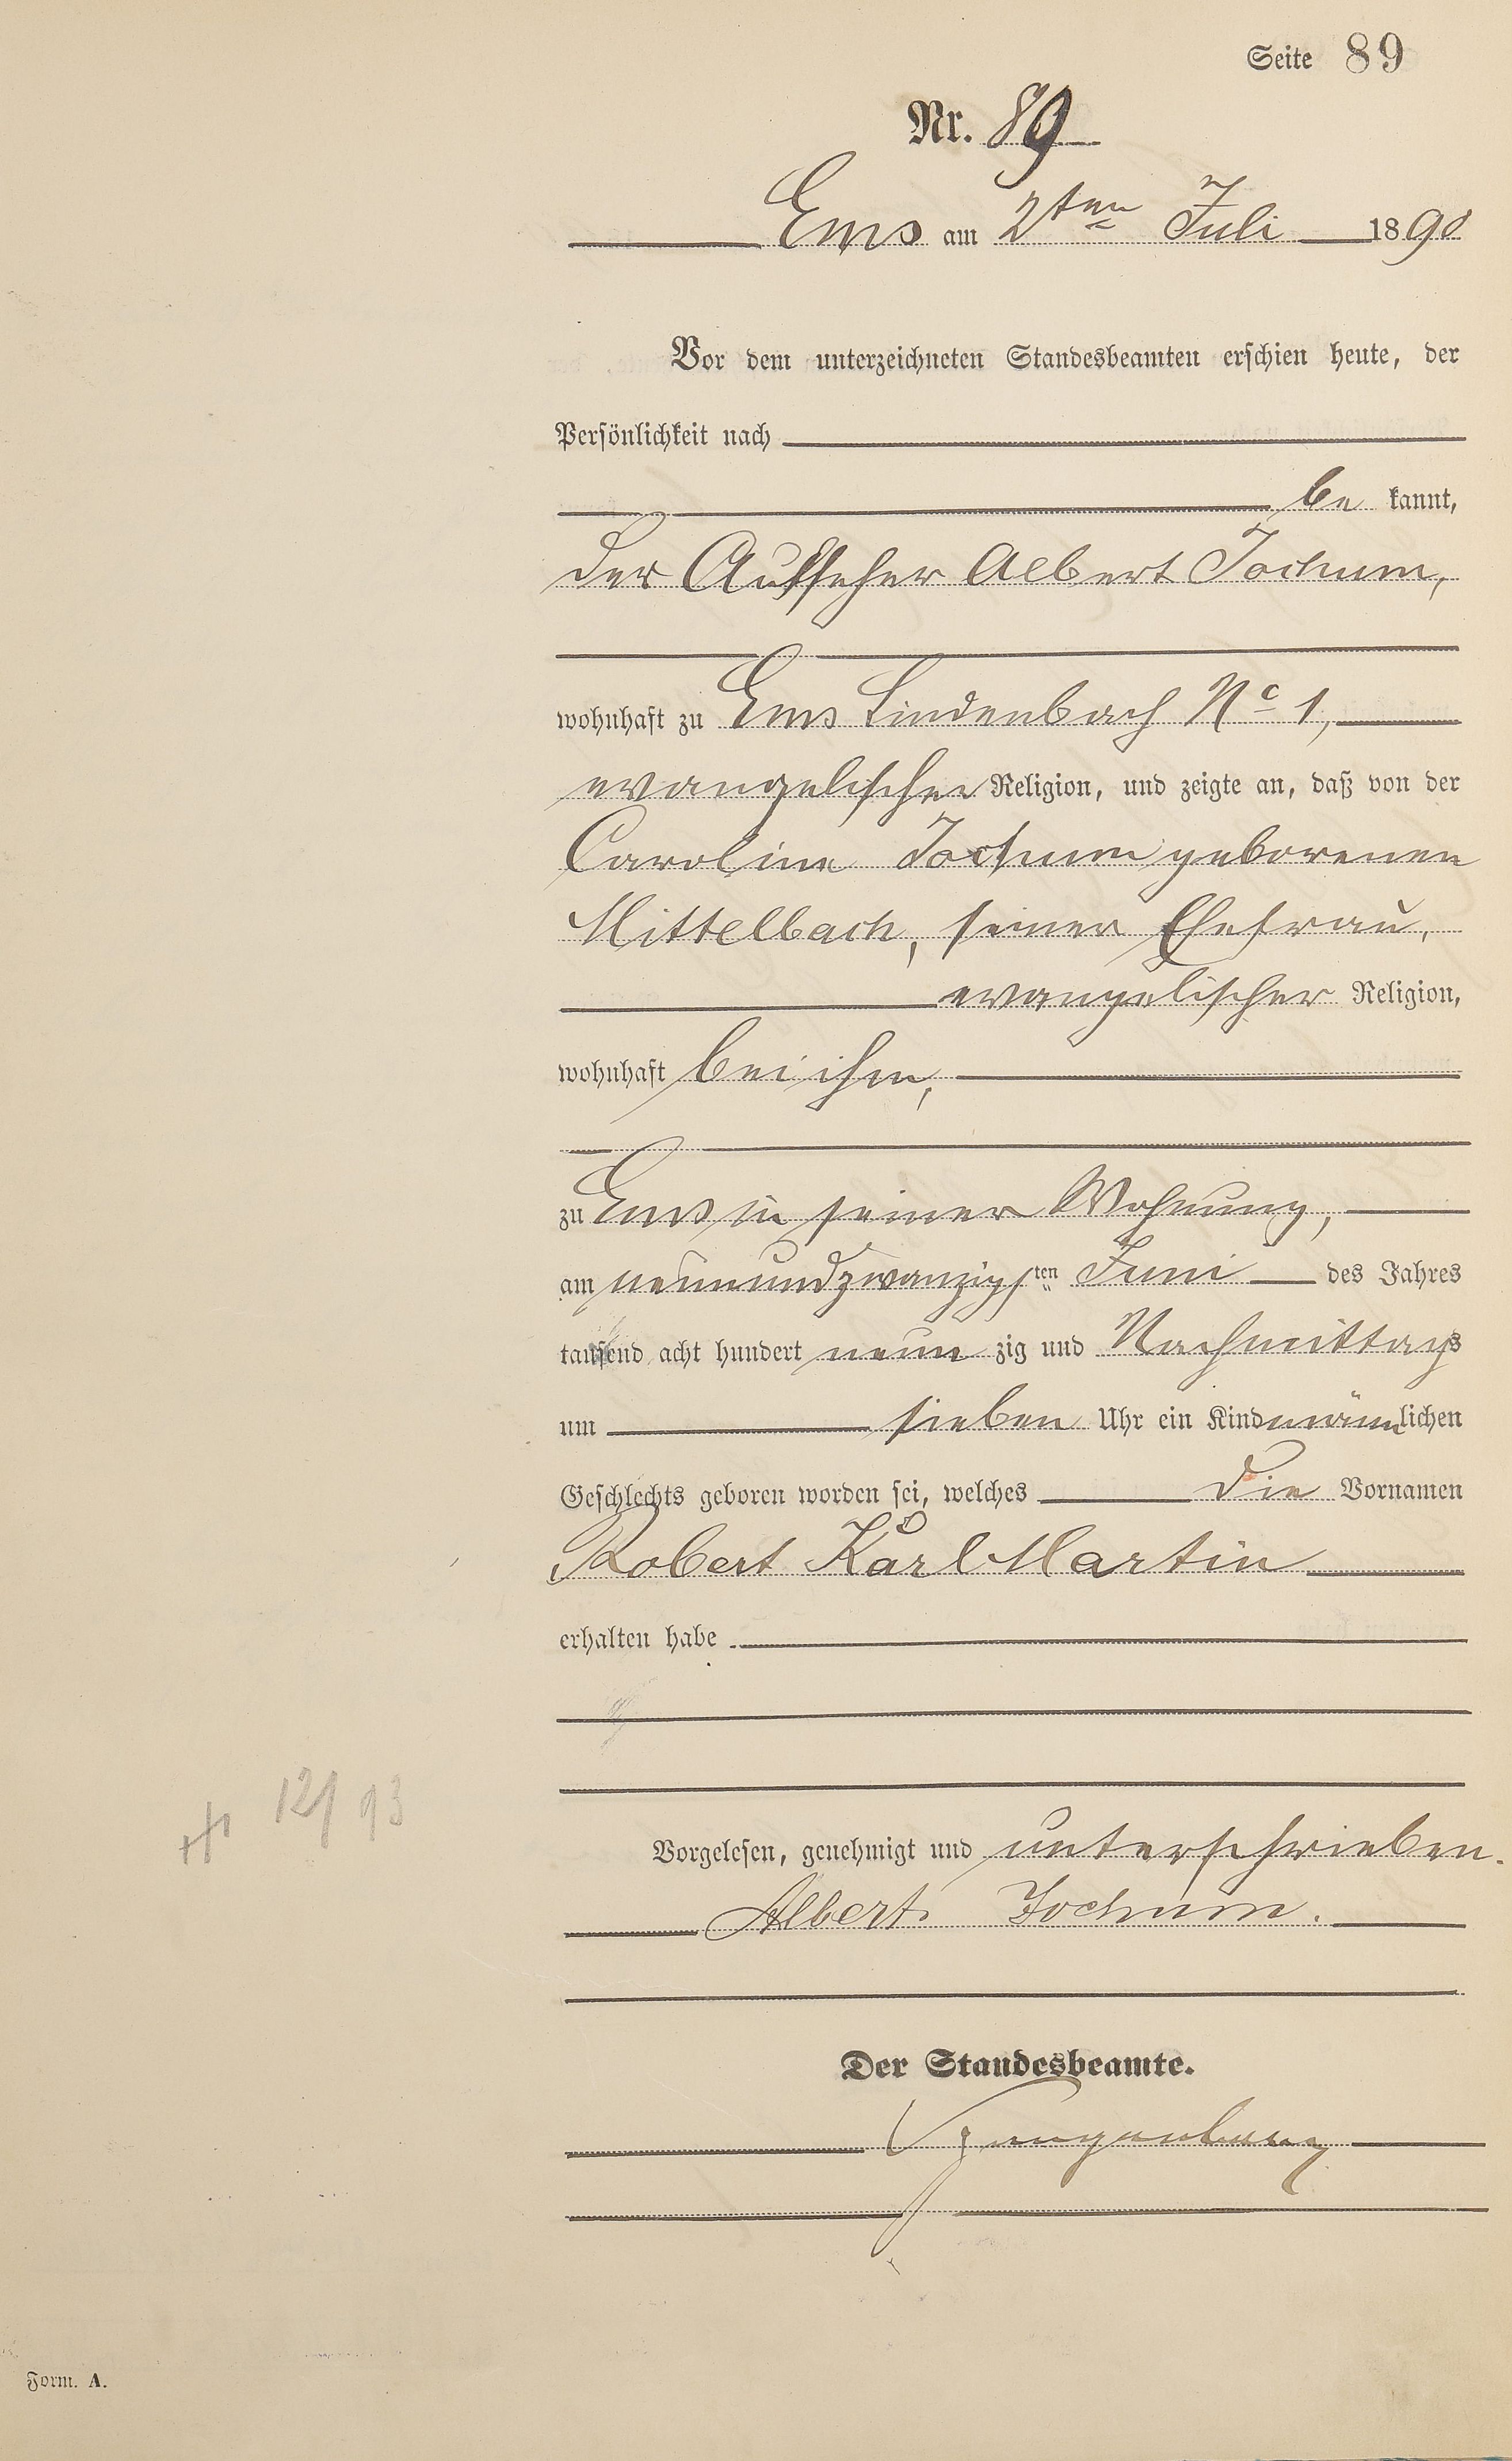 Seite 89
Nr. 89
Ems am 2ten Juli 1890
Vor dem unterzeichneten Standesbeamten erschien heute, der
Persönlichkeit nach
be kannt,
der Aufseher Albert Jochum,
wohnhaft zu Ems Lindenbach No 1,
evangelischer Religion, und zeigte an, daß von der
Caroline Jochum geborenen
Mittelbach, seiner Ehefrau,
evangelischer Religion,
wohnhaft bei ihm,
zu Ems in seiner Wohnung,
am neunundzwanzigsten Juni des Jahres
tausend acht hundert neun zig und Nachmittags
um sieben Uhr ein Kind männlichen
Geschlechts geboren worden sei, welches die Vornamen
Robert Karl Martin
erhalten habe
12/93
Vorgelesen, genehmigt und unterschrieben.
Albert Jochum.
Der Standesbeamte.
Form. A.